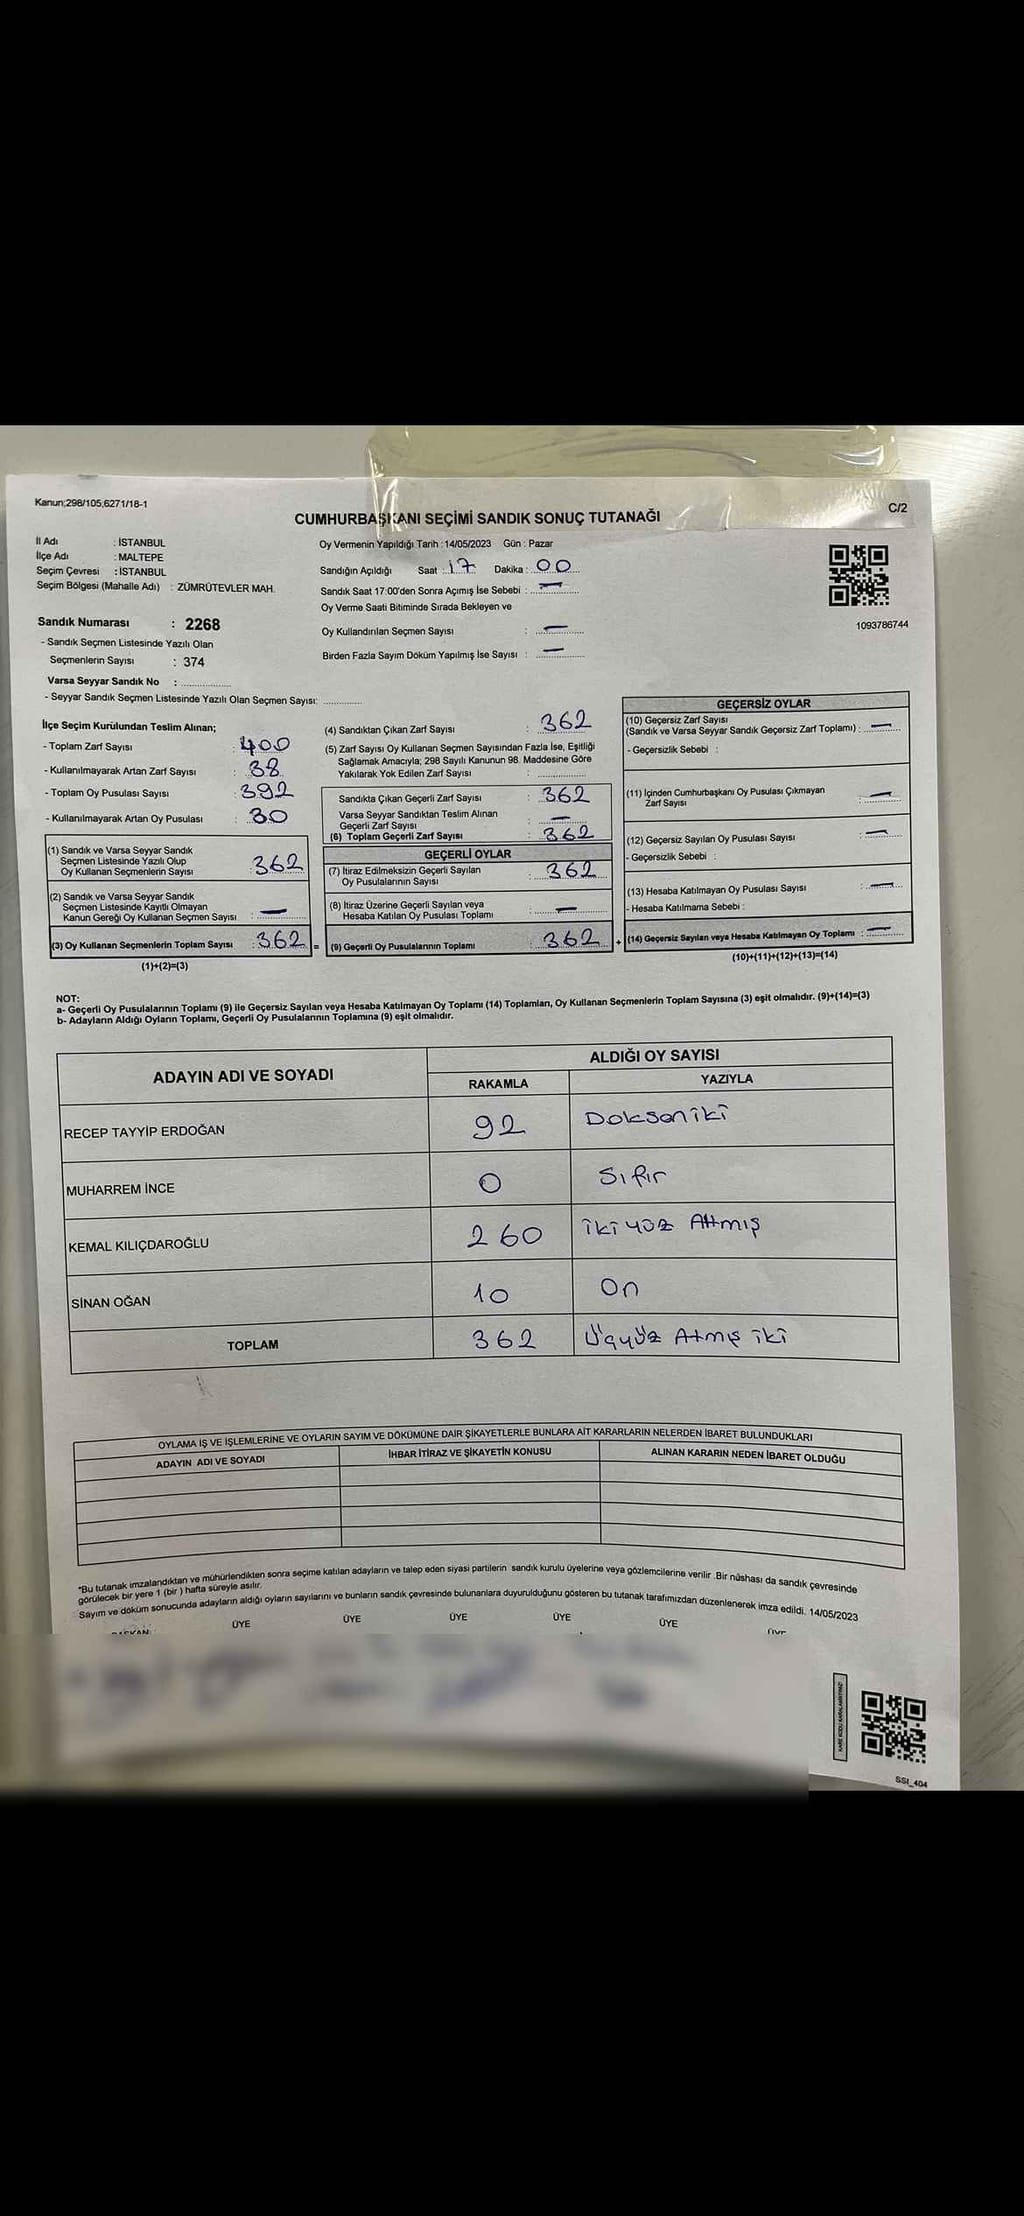 Kanun;298/105,6271/18-1
C/2
CUMHURBAŞKANI SEÇİMİ SANDIK SONUÇ TUTANAĞI
İl Adı : İSTANBUL
İlçe Adı : MALTEPE
Seçim Çevresi : İSTANBUL
Seçim Bölgesi (Mahalle Adı) : ZÜMRÜTEVLER MAH.
Sandık Numarası : 2268
- Sandık Seçmen Listesinde Yazılı Olan
Seçmenlerin Sayısı : 374
Varsa Seyyar Sandık No :
- Seyyar Sandık Seçmen Listesinde Yazılı Olan Seçmen Sayısı:
Oy Vermenin Yapıldığı Tarih : 14/05/2023 Gün : Pazar
Sandığın Açıldığı Saat : 17 Dakika : 00
Sandık Saat 17:00'den Sonra Açımış İse Sebebi : —
Oy Verme Saati Bitiminde Sırada Bekleyen ve
Oy Kullandırılan Seçmen Sayısı : —
Birden Fazla Sayım Döküm Yapılmış İse Sayısı : —
1093786744
İlçe Seçim Kurulundan Teslim Alınan;
- Toplam Zarf Sayısı : 400
- Kullanılmayarak Artan Zarf Sayısı : 38
- Toplam Oy Pusulası Sayısı : 392
- Kullanılmayarak Artan Oy Pusulası : 30
(1) Sandık ve Varsa Seyyar Sandık
Seçmen Listesinde Yazılı Olup
Oy Kullanan Seçmenlerin Sayısı : 362
(2) Sandık ve Varsa Seyyar Sandık
Seçmen Listesinde Kayıtlı Olmayan
Kanun Gereği Oy Kullanan Seçmen Sayısı : —
(3) Oy Kullanan Seçmenlerin Toplam Sayısı : 362 =
(1)+(2)=(3)
(4) Sandıktan Çıkan Zarf Sayısı : 362
(5) Zarf Sayısı Oy Kullanan Seçmen Sayısından Fazla İse, Eşitliği
Sağlamak Amacıyla; 298 Sayılı Kanunun 98. Maddesine Göre
Yakılarak Yok Edilen Zarf Sayısı :
Sandıkta Çıkan Geçerli Zarf Sayısı : 362
Varsa Seyyar Sandıktan Teslim Alınan
Geçerli Zarf Sayısı : —
(6) Toplam Geçerli Zarf Sayısı : 362
GEÇERLİ OYLAR
(7) İtiraz Edilmeksizin Geçerli Sayılan
Oy Pusulalarının Sayısı : 362
(8) İtiraz Üzerine Geçerli Sayılan veya
Hesaba Katılan Oy Pusulası Toplamı : —
(9) Geçerli Oy Pusulalarının Toplamı : 362 +
GEÇERSİZ OYLAR
(10) Geçersiz Zarf Sayısı
(Sandık ve Varsa Seyyar Sandık Geçersiz Zarf Toplamı) : —
- Geçersizlik Sebebi :
(11) İçinden Cumhurbaşkanı Oy Pusulası Çıkmayan
Zarf Sayısı : —
(12) Geçersiz Sayılan Oy Pusulası Sayısı : —
- Geçersizlik Sebebi :
(13) Hesaba Katılmayan Oy Pusulası Sayısı : —
- Hesaba Katılmama Sebebi :
(14) Geçersiz Sayılan veya Hesaba Katılmayan Oy Toplamı : —
(10)+(11)+(12)+(13)=(14)
NOT:
a- Geçerli Oy Pusulalarının Toplamı (9) ile Geçersiz Sayılan veya Hesaba Katılmayan Oy Toplamı (14) Toplamları, Oy Kullanan Seçmenlerin Toplam Sayısına (3) eşit olmalıdır. (9)+(14)=(3)
b- Adayların Aldığı Oyların Toplamı, Geçerli Oy Pusulalarının Toplamına (9) eşit olmalıdır.
ADAYIN ADI VE SOYADI
ALDIĞI OY SAYISI
RAKAMLA YAZIYLA
RECEP TAYYİP ERDOĞAN 92 Doksaniki
MUHARREM İNCE 0 Sıfır
KEMAL KILIÇDAROĞLU 260 iki yüz Atmış
SİNAN OĞAN 10 On
TOPLAM 362 Üçyüz Atmış iki
OYLAMA İŞ VE İŞLEMLERİNE VE OYLARIN SAYIM VE DÖKÜMÜNE DAİR ŞİKAYETLERLE BUNLARA AİT KARARLARIN NELERDEN İBARET BULUNDUKLARI
ADAYIN ADI VE SOYADI İHBAR İTİRAZ VE ŞİKAYETİN KONUSU ALINAN KARARIN NEDEN İBARET OLDUĞU
*Bu tutanak imzalandıktan ve mühürlendikten sonra seçime katılan adayların ve talep eden siyasi partilerin sandık kurulu üyelerine veya gözlemcilerine verilir .Bir nüshası da sandık çevresinde
görülecek bir yere 1 (bir ) hafta süreyle asılır.
Sayım ve döküm sonucunda adayların aldığı oyların sayılarını ve bunların sandık çevresinde bulunanlara duyurulduğunu gösteren bu tutanak tarafımızdan düzenlenerek imza edildi. 14/05/2023
BAŞKAN ÜYE ÜYE ÜYE ÜYE ÜYE ÜYE
SSI_404